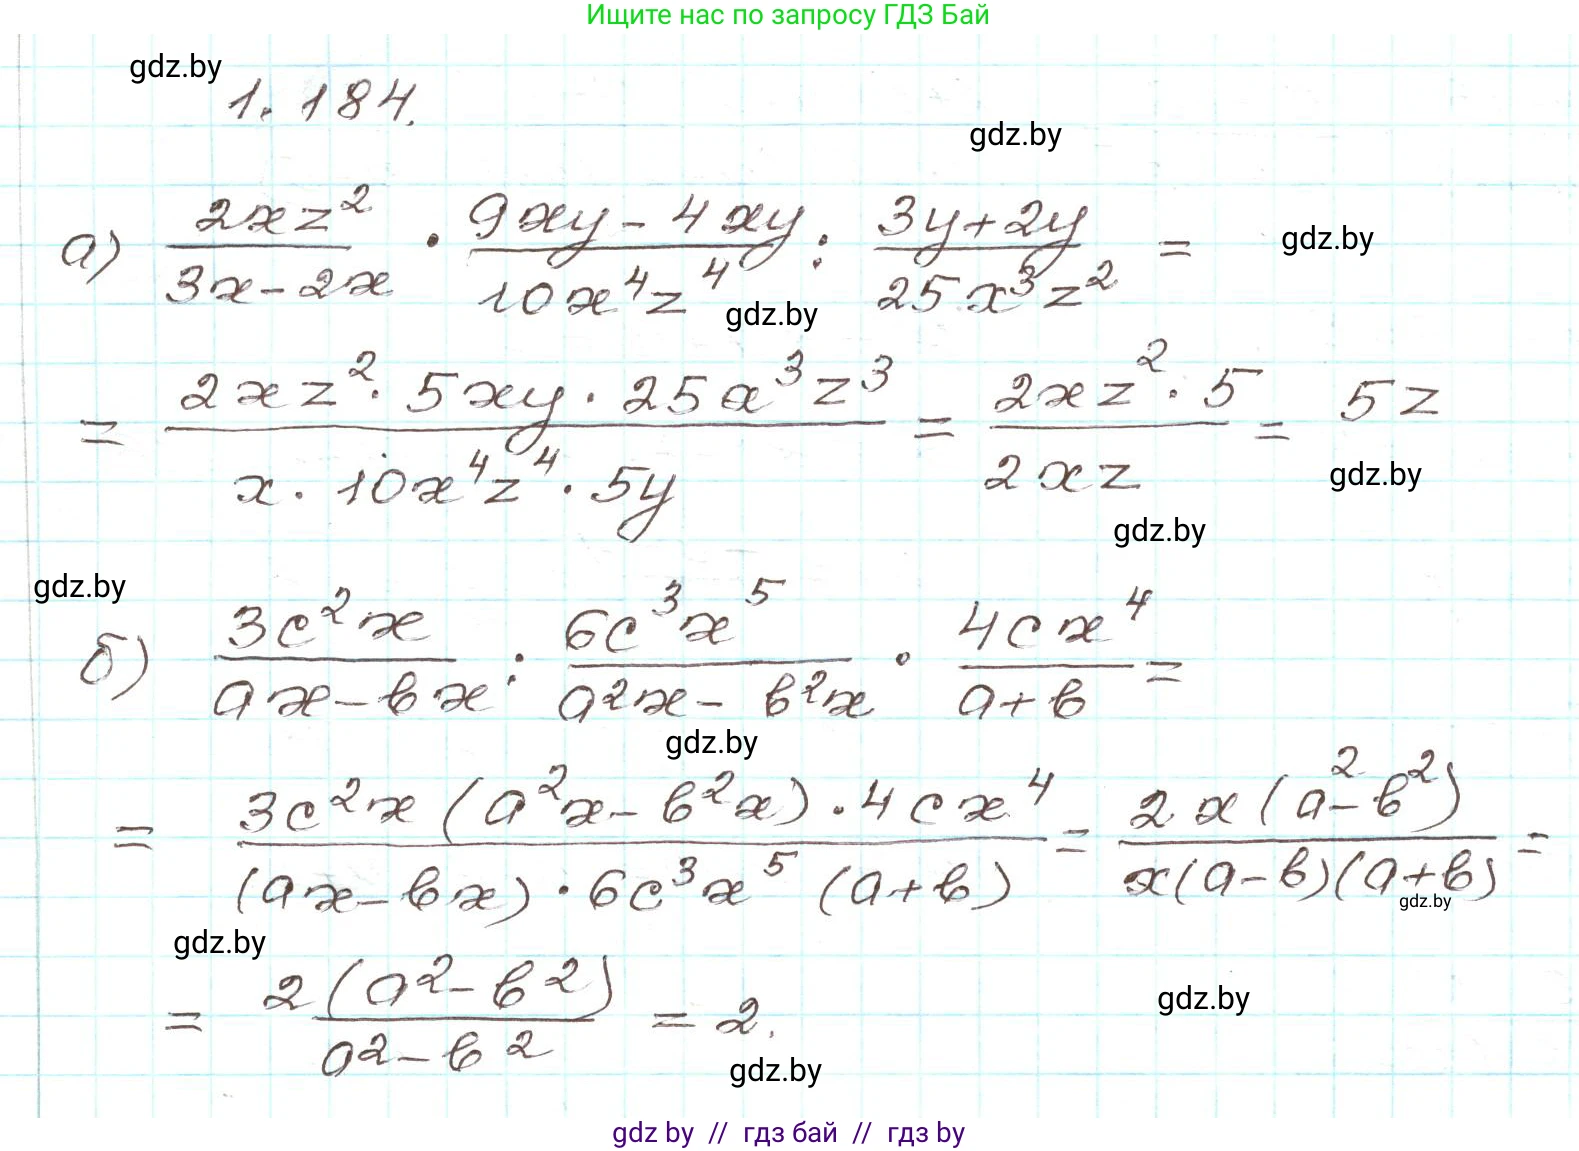 Ищите нас по запросу ГДЗ Бай
gdz.by
1.184.
gdz.by
а) \frac{2xz^2}{3x-2x} · \frac{9xy-4xy}{10x^4z^4} : \frac{3y+2y}{25x^3z^2} =
gdz.by
gdz.by
= \frac{2xz^2 · 5xy · 25x^3z^3}{x · 10x^4z^4 · 5y} = \frac{2xz^2 · 5}{2xz} = 5z
gdz.by
gdz.by
gdz.by
б) \frac{3c^2x}{ax-bx} : \frac{6c^3x^5}{a^2x-b^2x} · \frac{4cx^4}{a+b} =
gdz.by
= \frac{3c^2x(a^2x-b^2x) · 4cx^4}{(ax-bx) · 6c^3x^5(a+b)} = \frac{2x(a^2-b^2)}{x(a-b)(a+b)} =
gdz.by
gdz.by
= \frac{2(a^2-b^2)}{a^2-b^2} = 2.
gdz.by
gdz.by
gdz by // гдз бай // гдз by